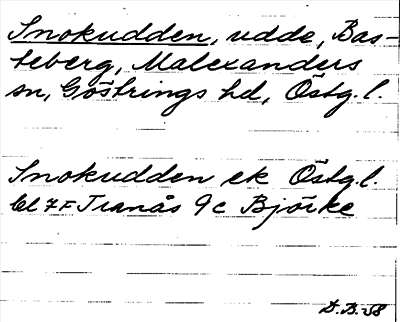 Snokudden, udde, Bas-
teberg, Malexanders
sn, Göstrings hd, Östg.l.
Snokudden ek Östg.l.
bl 7F Tranås 9c Björke
D.B.-58